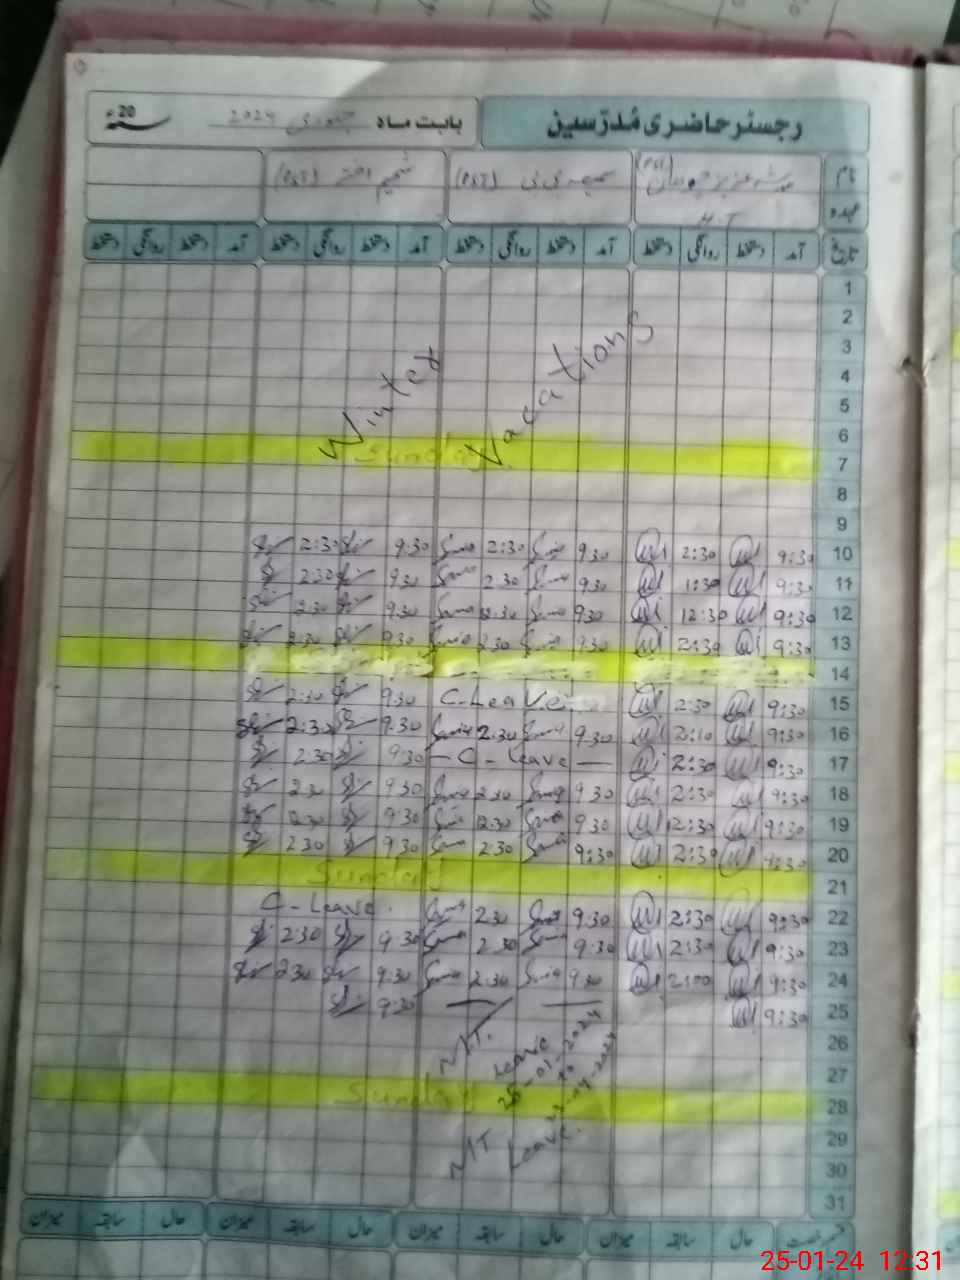 رجسٹر حاضری مُدرّسین بابت ماہ جنوری 2024 20ء
نام (PST) (PST) شمیم اختر (PST)
عہدہ H.T
تاریخ آمد دستخط روانگی دستخط آمد دستخط روانگی دستخط آمد دستخط روانگی دستخط آمد دستخط روانگی دستخط
1
2
3
4
5
Winter Vacations
6
7 Sunday
8
9
10 9:30 2:30 9:30 2:30 9:30 2:30
11 9:30 1:30 9:30 2:30 9:30 2:30
12 9:30 12:30 9:30 12:30 9:30 2:30
13 9:30 2:30 9:30 2:30 9:30 2:30
14
15 9:30 2:30 C-Leave 9:30 2:30
16 9:30 2:10 9:30 2:30 9:30 2:30
17 9:30 2:30 - C - Leave - 9:30 2:30
18 9:30 2:30 9:30 2:30 9:30 2:30
19 9:30 12:30 9:30 12:30 9:30 12:30
20 9:30 2:30 9:30 2:30 9:30 2:30
21 Sunday
22 9:30 2:30 9:30 2:30 C-Leave
23 9:30 2:30 9:30 2:30 9:30 2:30
24 9:30 2:00 9:30 2:30 9:30 2:30
25 9:30 9:30
26
27
28 Sunday
MT. Leave
25-01-2024
MT Leave.
29
30
31
قسم رخصت حال سابقہ میزان حال سابقہ میزان حال سابقہ میزان حال سابقہ میزان
25-01-24 12:31